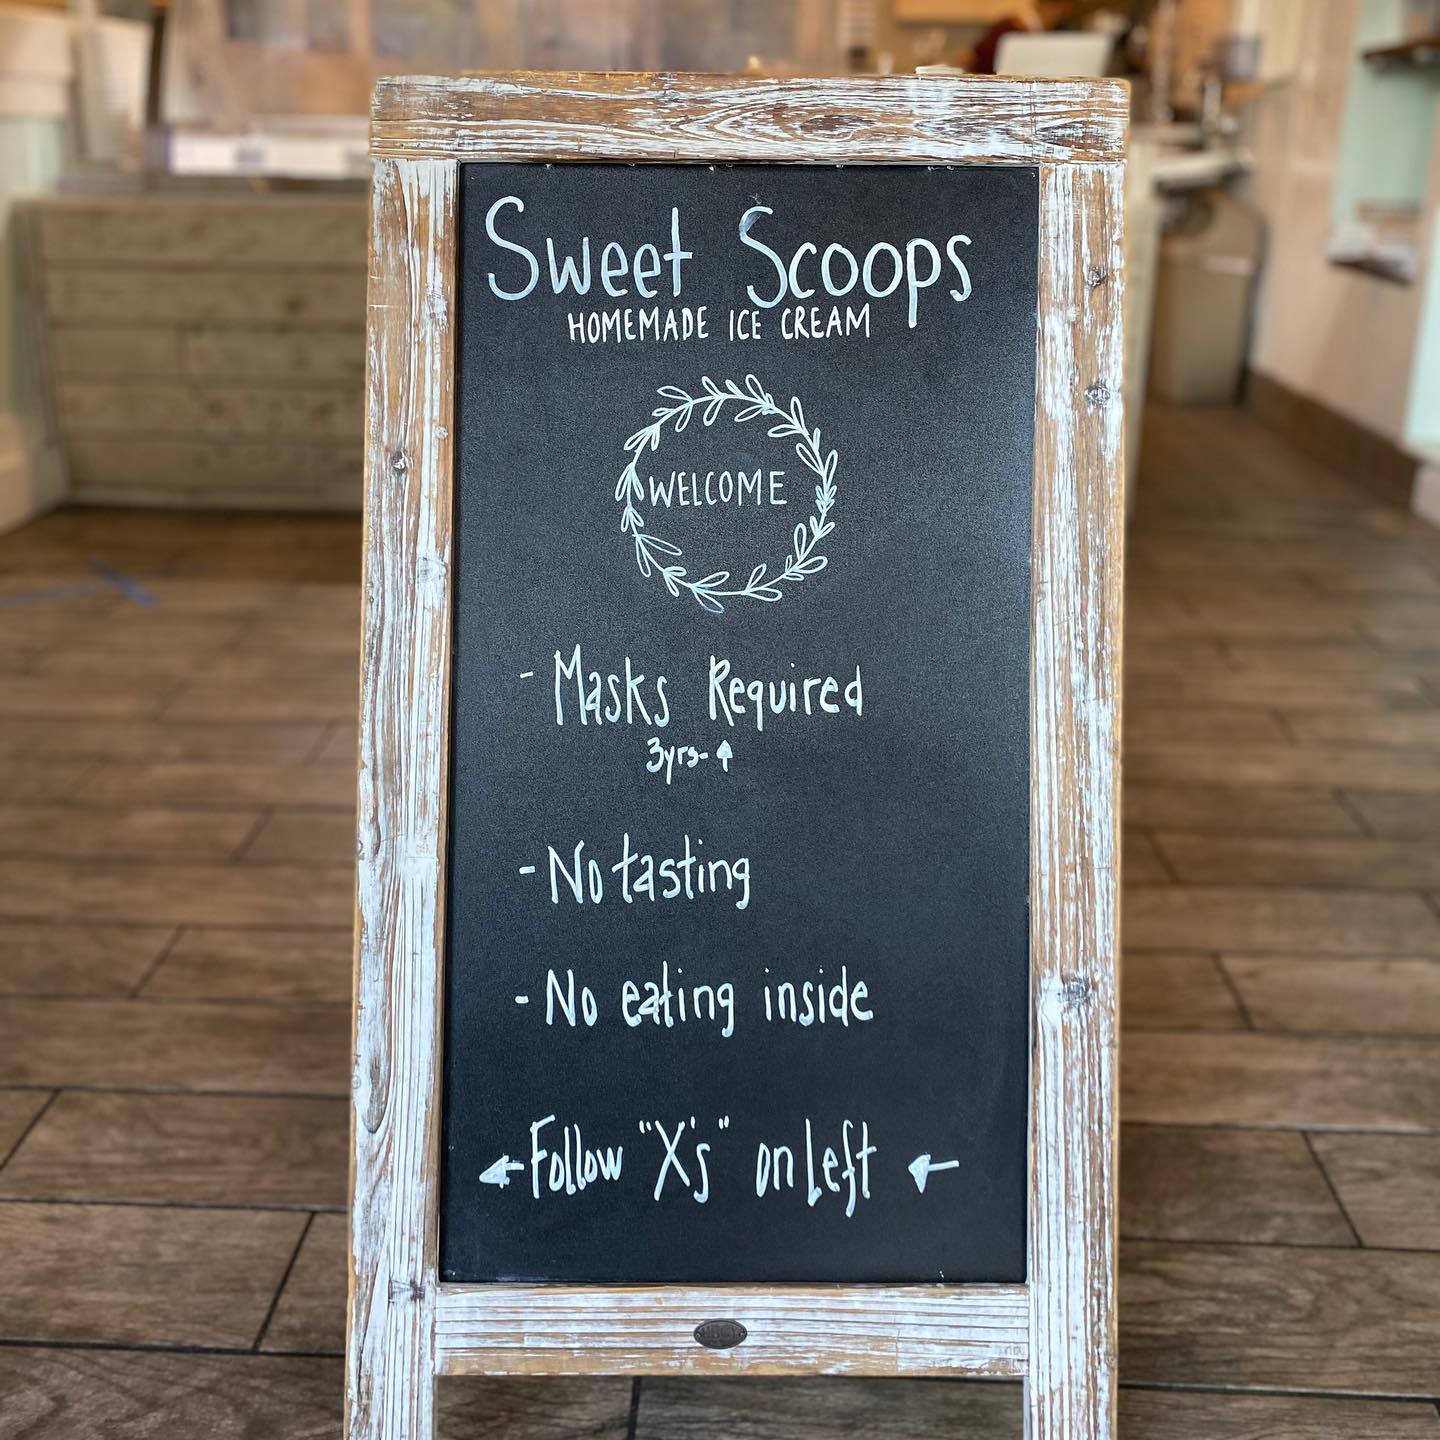 Sweet Scoops
HOMEMADE ICE CREAM
WELCOME
- Masks Required
3yrs- ↑
- No tasting
- No eating inside
← Follow "X's" on Left ←